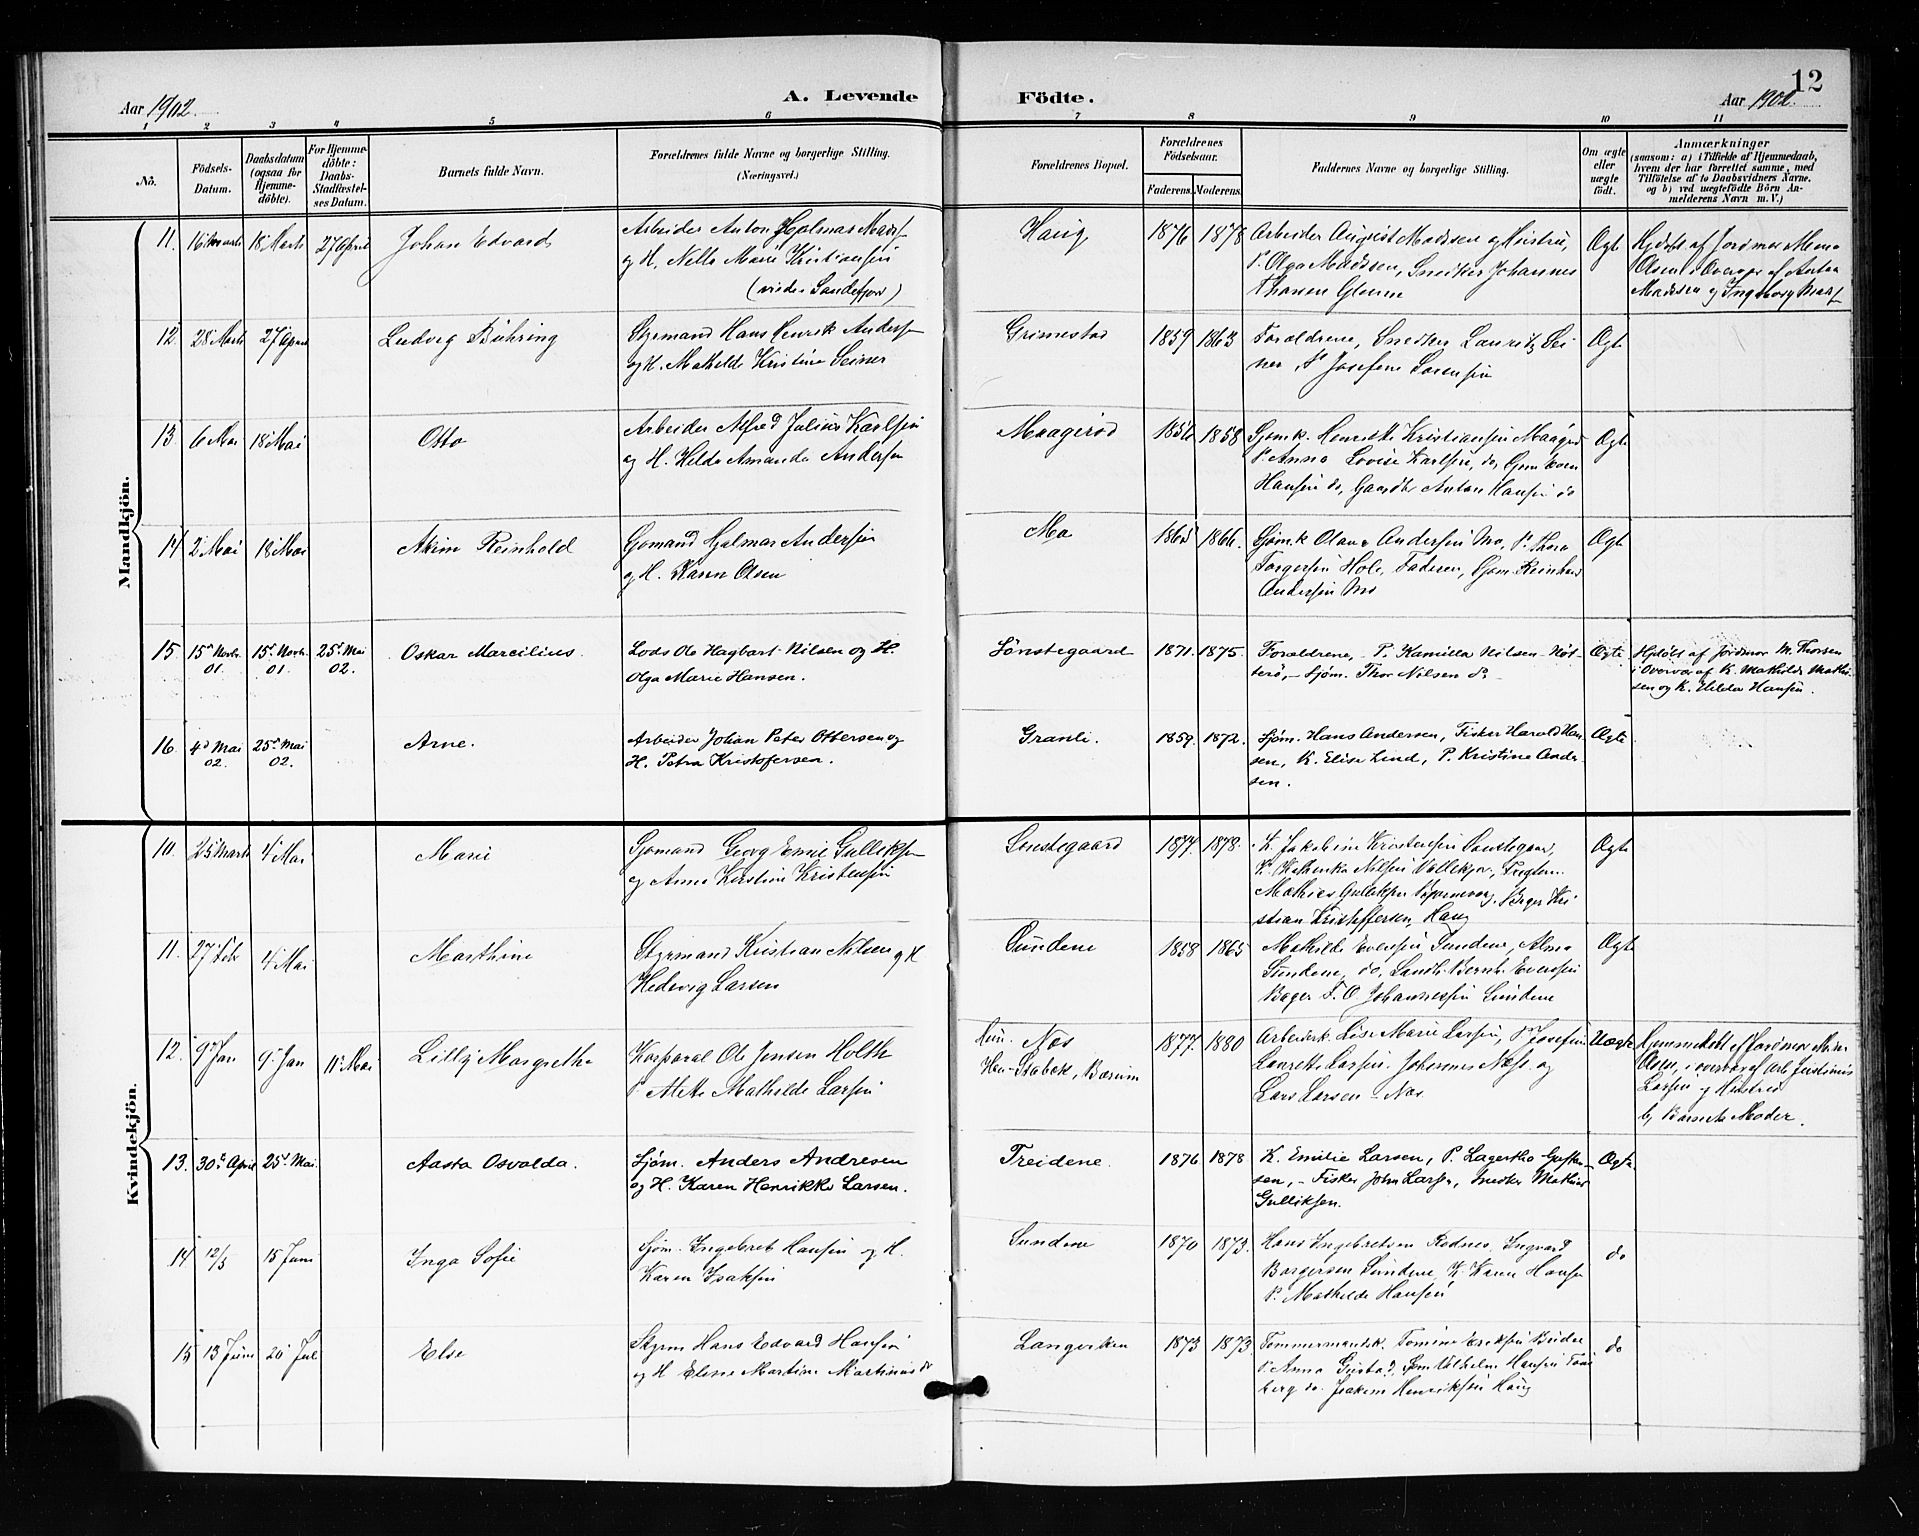 12
Aar 1902.
A. Levende
Födte.
Aar 1902.
1 2 3 4 5 6 7 8 9 10 11
No.
Födsels-
Datum.
Daabsdatum
(ogsaa for
Hjemme-
döbte).
For Hjemme-
döbte:
Daabs-
Stadfæstel-
ses Datum.
Barnets fulde Navn.
Forældrenes fulde Navne og borgerlige Stilling.
(Næringsvei.)
Forældrenes Bopæl.
Forældrenes
Födselsaar.
Faderens. Moderens.
Faddernes Navne og borgerlige Stilling.
Om ægte
eller
uægte
født.
Anmærkninger
(saasom: a) i Tilfælde af Hjemmedaab,
hvem der har forrettet samme, med
Tilföielse af to Daabsvidners Navne.
og b) ved uegtefödte Börn An-
melderens Navn m. V.)
Mandkjön.
11. 16 Marts 18 Marts 27 April Johan Edvard
Arbeider Anton Hjalmar Mads
og H. Nella Marie Kristiansen
(viede i Sandefjord)
Haug 1876 1878
Arbeider August Madsen og Hustru,
P. Olga Madsen, Snedker Johannes
Ægte
Hjdøbt af Jordmor Mina
Olsen i Overvær af Anton
Madsen og Ingeborg
12. 28 Marts 27 April Ludvig Bühring
Styrmand Hans Henrik Anders
og H. Mathilde Kristine Seiner
Grimestad 1859 1863
Forældrene, Snedker Lauritz Sei
ner, P Josefine Lorensen
Ægte
13. 6 Mai 18 Mai Otto
Arbeider Alfred Julius Karlsen
og H. Hilda Amanda Andersen
Maagerød 1858
Gjømk. Henrette Kristiansen
P. Anna Lovise Karlsen, do,
Hansen do, Gaardbr Anton Hansen do
Ægte
14 2 Mai 18 Mai Reinhold
Sjømand Hjalmar Andersen
og H. Karen Olsen
Mo 1865 1866.
Sjøm.k Andersen Mo, P. Thora
Torgersen Hole, Faderen, Sjøm. Reinhard
Andersen Mo
Ægte
15. 15de Novbr. 01. 15de Novbr. 01. 25de Mai 02. Oskar Marcilius.
Lods Ole Hagbart Nilsen og H.
Olga Marie Hansen.
Sønstegaard 1871. 1875.
Forældrene, - P. Kamilla Nilsen - Nøt-
terø, - Sjøm. Thor Nilsen do -
Ægte
Hjdøbt af Jordmor M. Thorsen
i Overvær af K. Mathilde Mathi-
sen og K. Hilda Hansen.
16. 4de Mai 02. 25de Mai 02. Arne.
Arbeider Johan Peter Ottersen og
H. Petra Kristofersen.
Granli. 1859. 1872.
Sjøm. Hans Andersen, Fisker Harald Han-
sen, K. Elise Lind, P. Kristine Ander-
sen.
Ægte
Kvindekjön.
10. 25 Marts 4 Mai Marie
Sjømand Georg Emil Gulliksen
og Anna Kirstine Kristensen
Sønstegaard 1877. 1878.
K. Jakobine Kristensen Sønstegaar,
K. Kathinka Nilsen
Mathias Gulliksen
stian Kristoffersen, Haug
Ægte
11. 27 Feb 4 Mai Marthine
Styrmand Kristian Nilsen og H
Hedevig Larsen
Sundene 1858 1865
Mathilde Evensen Sundene, Alma
Sundene, do, Evensen
Bager T. O. Johannesen Sundene
Ægte
12. 9de Jan 9de Jan 11te Mai Lilly Margrethe
Korporal Ole Jensen Holth
P Alette Mathilde Larsen
Hun. Næs
Han - Stabæk, Bærum
1877. 1880
Arbeiderk. Lise Marie Larsen, P Josefine
Laurette Larsen. Johannes Næs og
Lars Larsen - Næs.
Uægte
Hjemmedøbt af Jordmor Mina
Olsen, i overvær af Arb Justinius
Larsen og Hustru
b, Barnets Moder.
13. 30te April 25de Mai. Aasta Osvalda.
Sjøm. Anders Andresen
og H. Karen Henrikke Larsen.
Treidene. 1876 1878
K. Emilie Larsen, P. Lagerta
sen, - Fisker John Larsen, Snedker Mathias
Gulliksen.
Ægte.
14. 12/5 15 Juni Inga Sofie
Sjøm. Ingebret Hansen og H.
Karen Isaksen
Sundene 1870 1873.
Hans Ingebretsen Rødnes, Ingvard
Borgersen Sundene, K Karen Hansen
P. Mathilde Hansen
do
15 13 Juni 20 Jul Else
Styrm Hans Edvard Hansen
og H Elene Martine
Langviken 1873 1873.
Tømmermandsk. Tomine Eriksen
P. Anna Gustad, Sjøm Vilhelm Hansen Tøns
berg do. Joakim Henriksen Haug
do